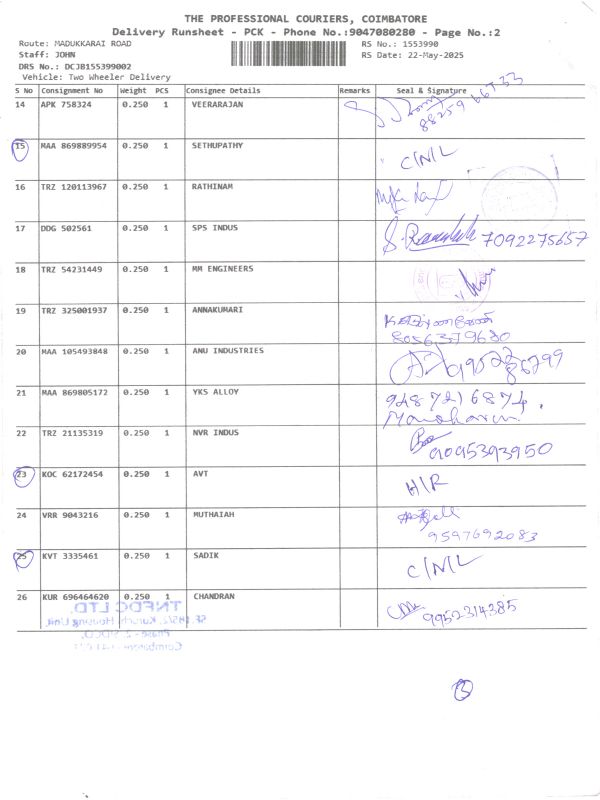 THE PROFESSIONAL COURIERS, COIMBATORE
Delivery Runsheet - PCK - Phone No.:9047080280 - Page No.:2
Route: MADUKKARAI ROAD
RS No.: 1553990
Staff: JOHN
RS Date: 22-May-2025
DRS No.: DCJB155399002
Vehicle: Two Wheeler Delivery
S No Consignment No Weight PCS Consignee Details Remarks Seal & Signature
14 APK 758324 0.250 1 VEERARAJAN
88259 66733
15 MAA 869889954 0.250 1 SETHUPATHY C/N/L
16 TRZ 120113967 0.250 1 RATHINAM
17 DDG 502561 0.250 1 SPS INDUS 7092275657
18 TRZ 54231449 0.250 1 MM ENGINEERS
19 TRZ 325001937 0.250 1 ANNAKUMARI
8056379680
20 MAA 105493848 0.250 1 ANU INDUSTRIES
21 MAA 869805172 0.250 1 YKS ALLOY 9487216874.
Manoharan
22 TRZ 21135319 0.250 1 NVR INDUS 9095393950
23 KOC 62172454 0.250 1 AVT H/R
24 VRR 9043216 0.250 1 MUTHAIAH
9597692083
25 KVT 3335461 0.250 1 SADIK C/N/L
26 KUR 696464620 0.250 1 CHANDRAN 9952314385
TNFDC LTD.